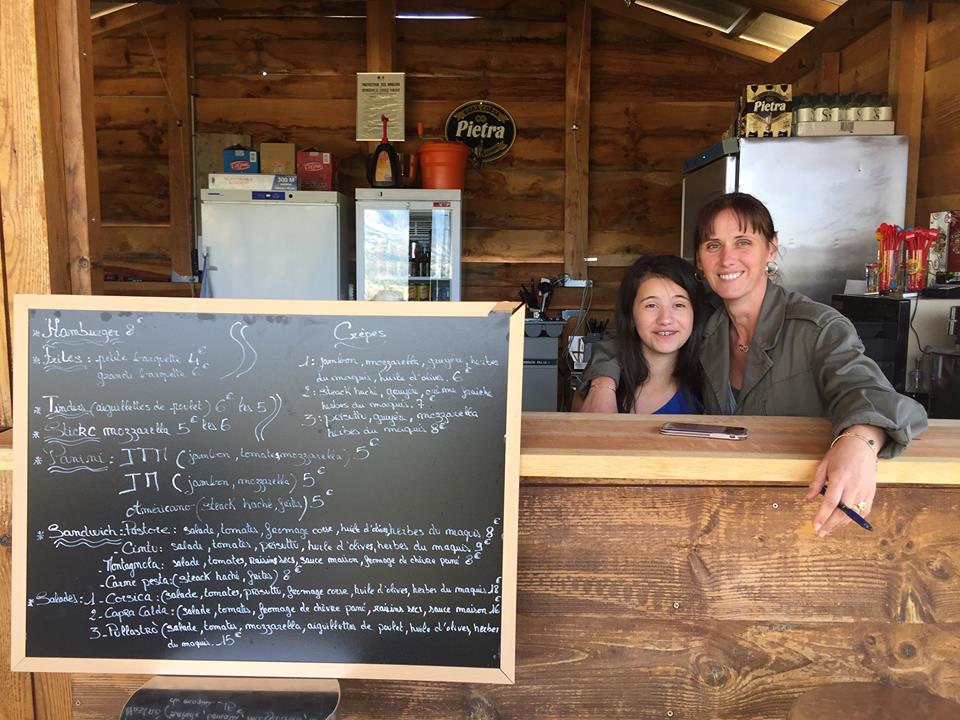 Pietra
Pietra
300 M
* Hamburger 8€
* Frites : petite barquette 4€
grande barquette 6€
* Tinders (aiguillettes de poulet) 6€ les 5
* Sticks mozzarella 5€ les 6
* Panini : JTM (jambon, tomates, mozzarella) 5€
JM (jambon, mozzarella) 5€
Américano (steack haché, frites) 5€
Crêpes
1: jambon, mozzarella, gruyère, herbes
du maquis, huile d'olives. 6€
2: steack haché, gruyère, crème fraîche
herbes du maquis. 7€
3: prisutti, gruyère, mozzarella
herbes du maquis 8€
* Sandwich : Pastore : salade, tomates, fromage corse, huile d'olives, herbes du maquis 8€
- Cintu : salade, tomates, prisuttu, huile d'olives, herbes du maquis 9€
Montagnola : salade, tomates, raisins secs, sauce maison, fromage de chèvre pané 8€
- Carne pesta : (steack haché, frites) 8€
* Salades : 1 - Corsica : (salade, tomates, prisuttu, fromage corse, huile d'olives, herbes du maquis 18€
2 - Capra Calda : (salade, tomates, fromage de chèvre pané, raisins secs, sauce maison 16€
3 - Pollastrà (salade, tomates, mozzarella, aiguillettes de poulet, huile d'olives, herbes
du maquis - 15€